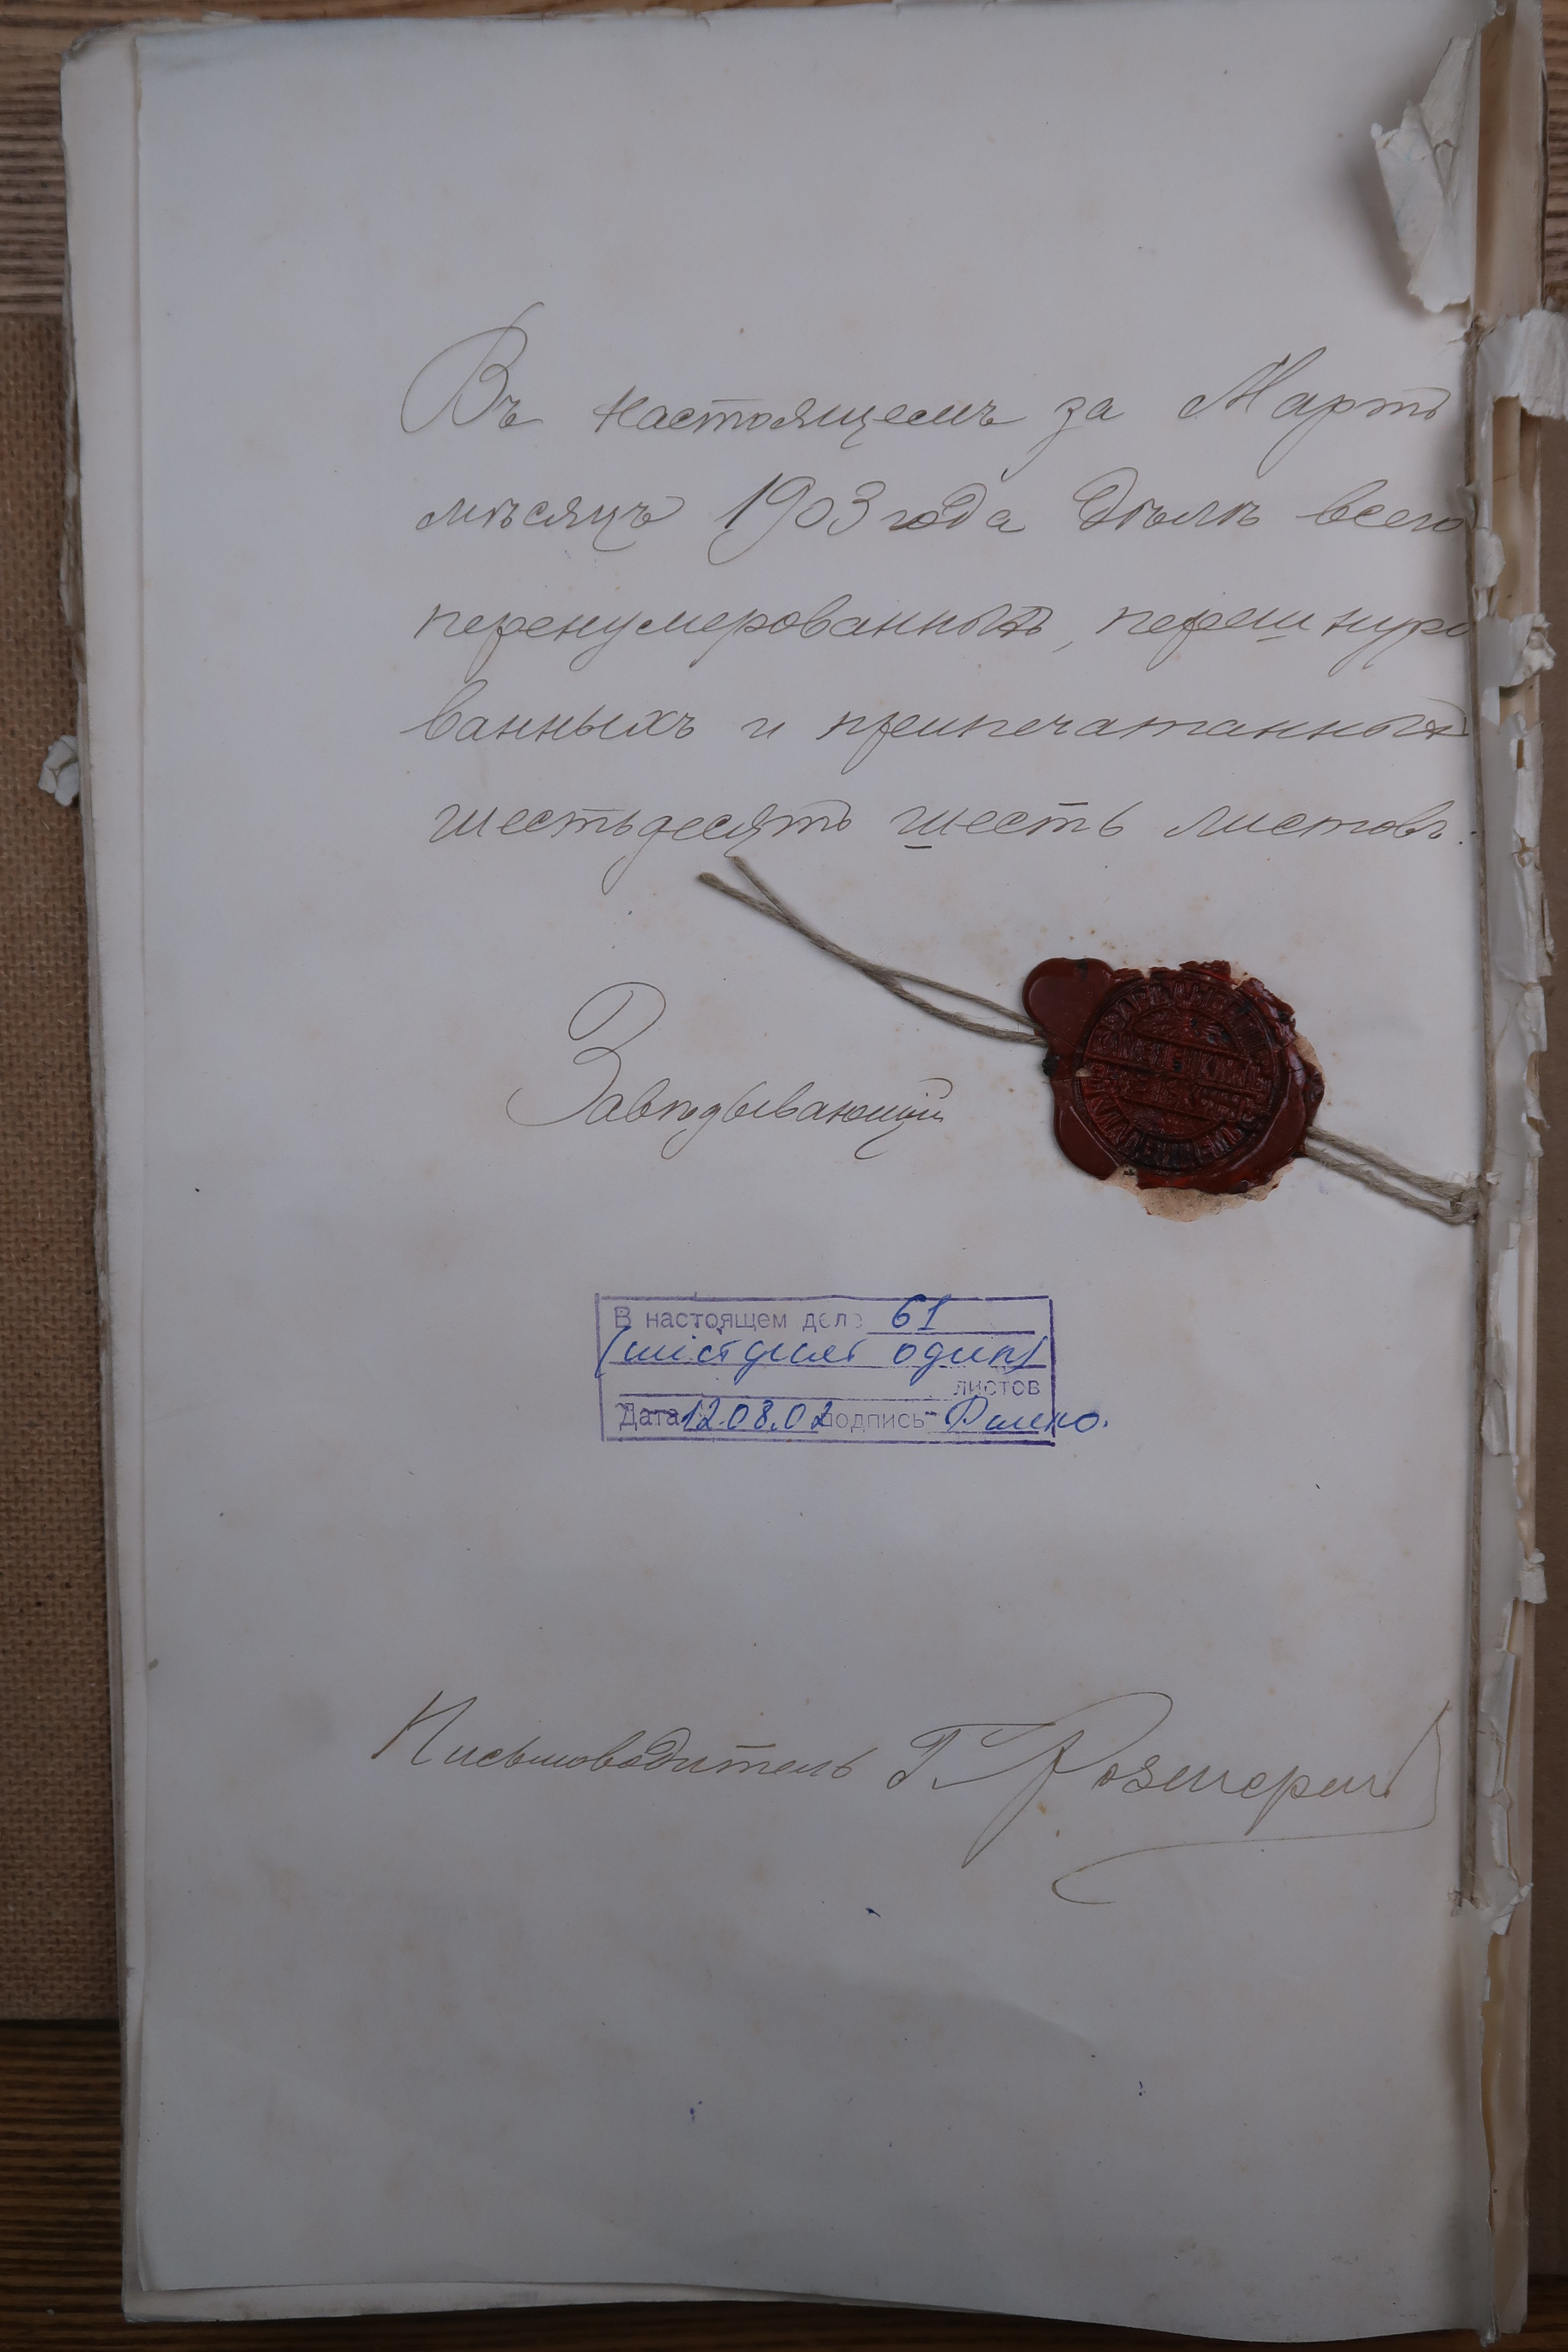 Въ настоящемъ за Мартъ
мѣсяцъ 1903 года дѣлѣ всего
перенумерованныхъ, перешнуро
ванныхъ и припечатанныхъ
шестьдесятъ шесть листовъ.
Завѣдывающій
В настоящем деле 61
(шістдесят один)
листов
Дата 12.08.02 подпись
Письмоводитель Г.